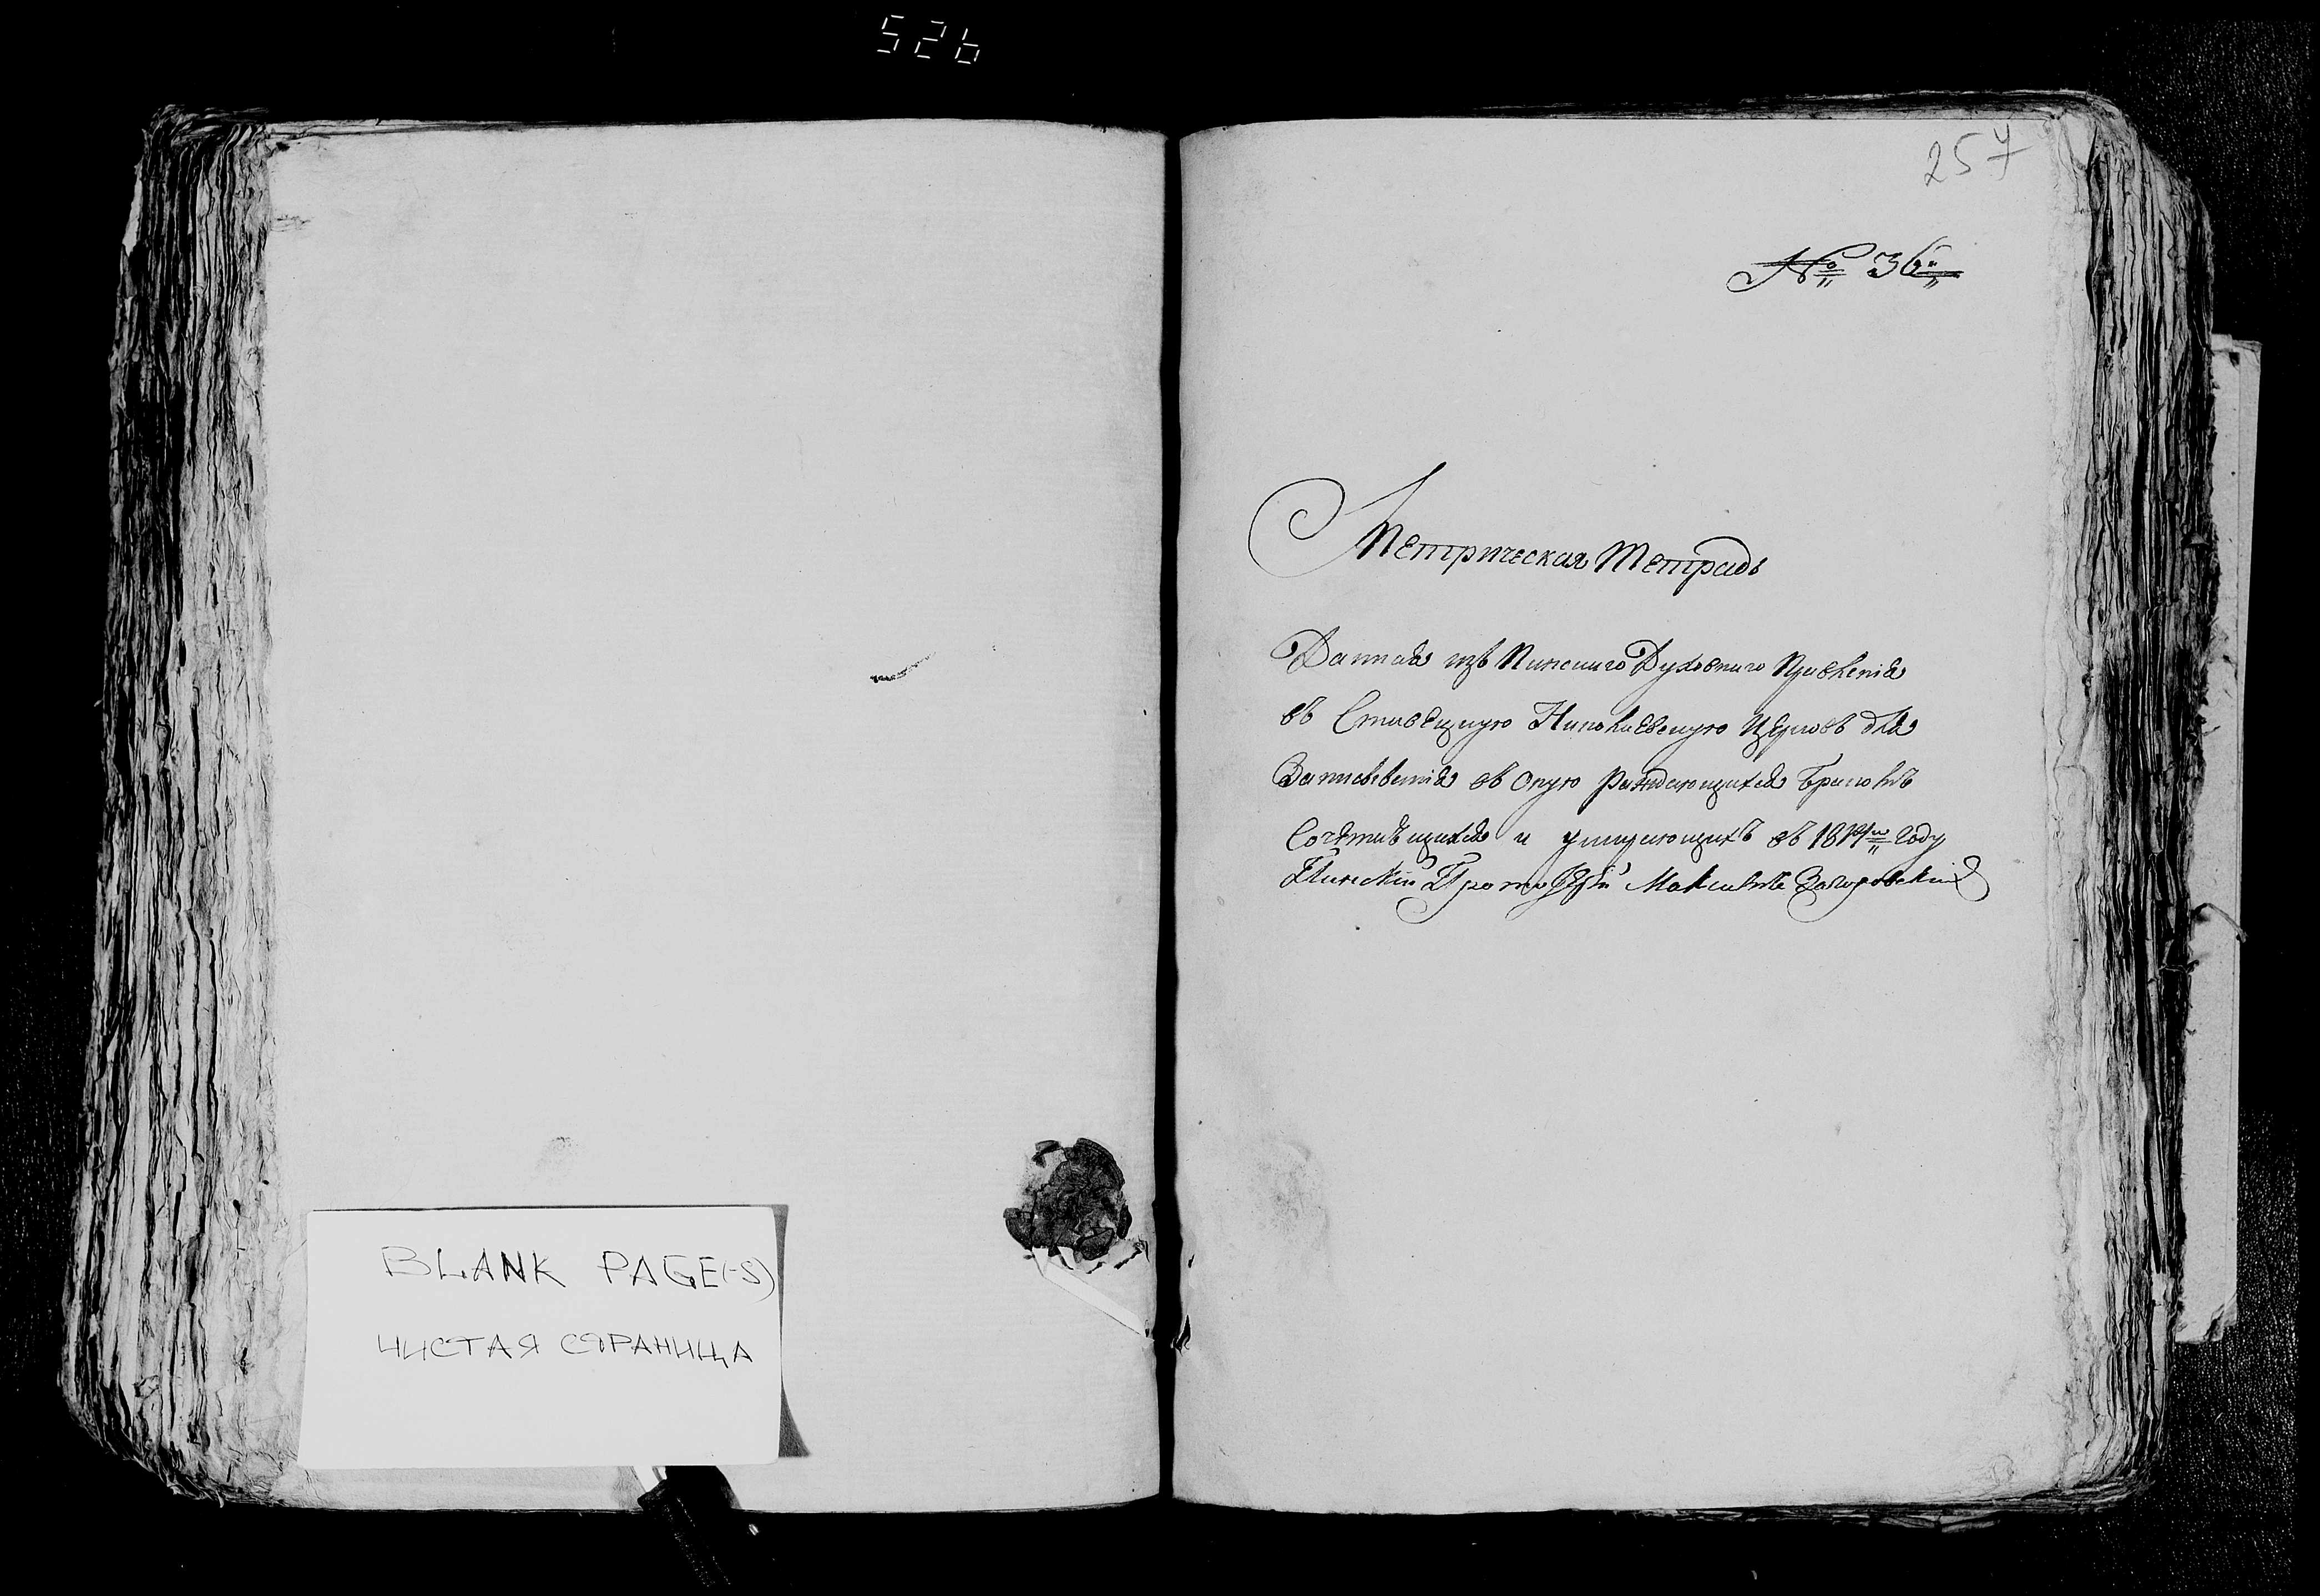 526
BLANK PAGE(-S)
ЧИСТАЯ СТРАНИЦА
257
№ 36
Метрическая Тетрадь
Данная изъ Пинскаго Духовнаго Правленія
въ Ставецкую Николаевскую Церковь для
Записыванія въ оную раждающихся бракомъ
Сочетавщихся и умирающихъ въ году
Пинскій Протоіерей